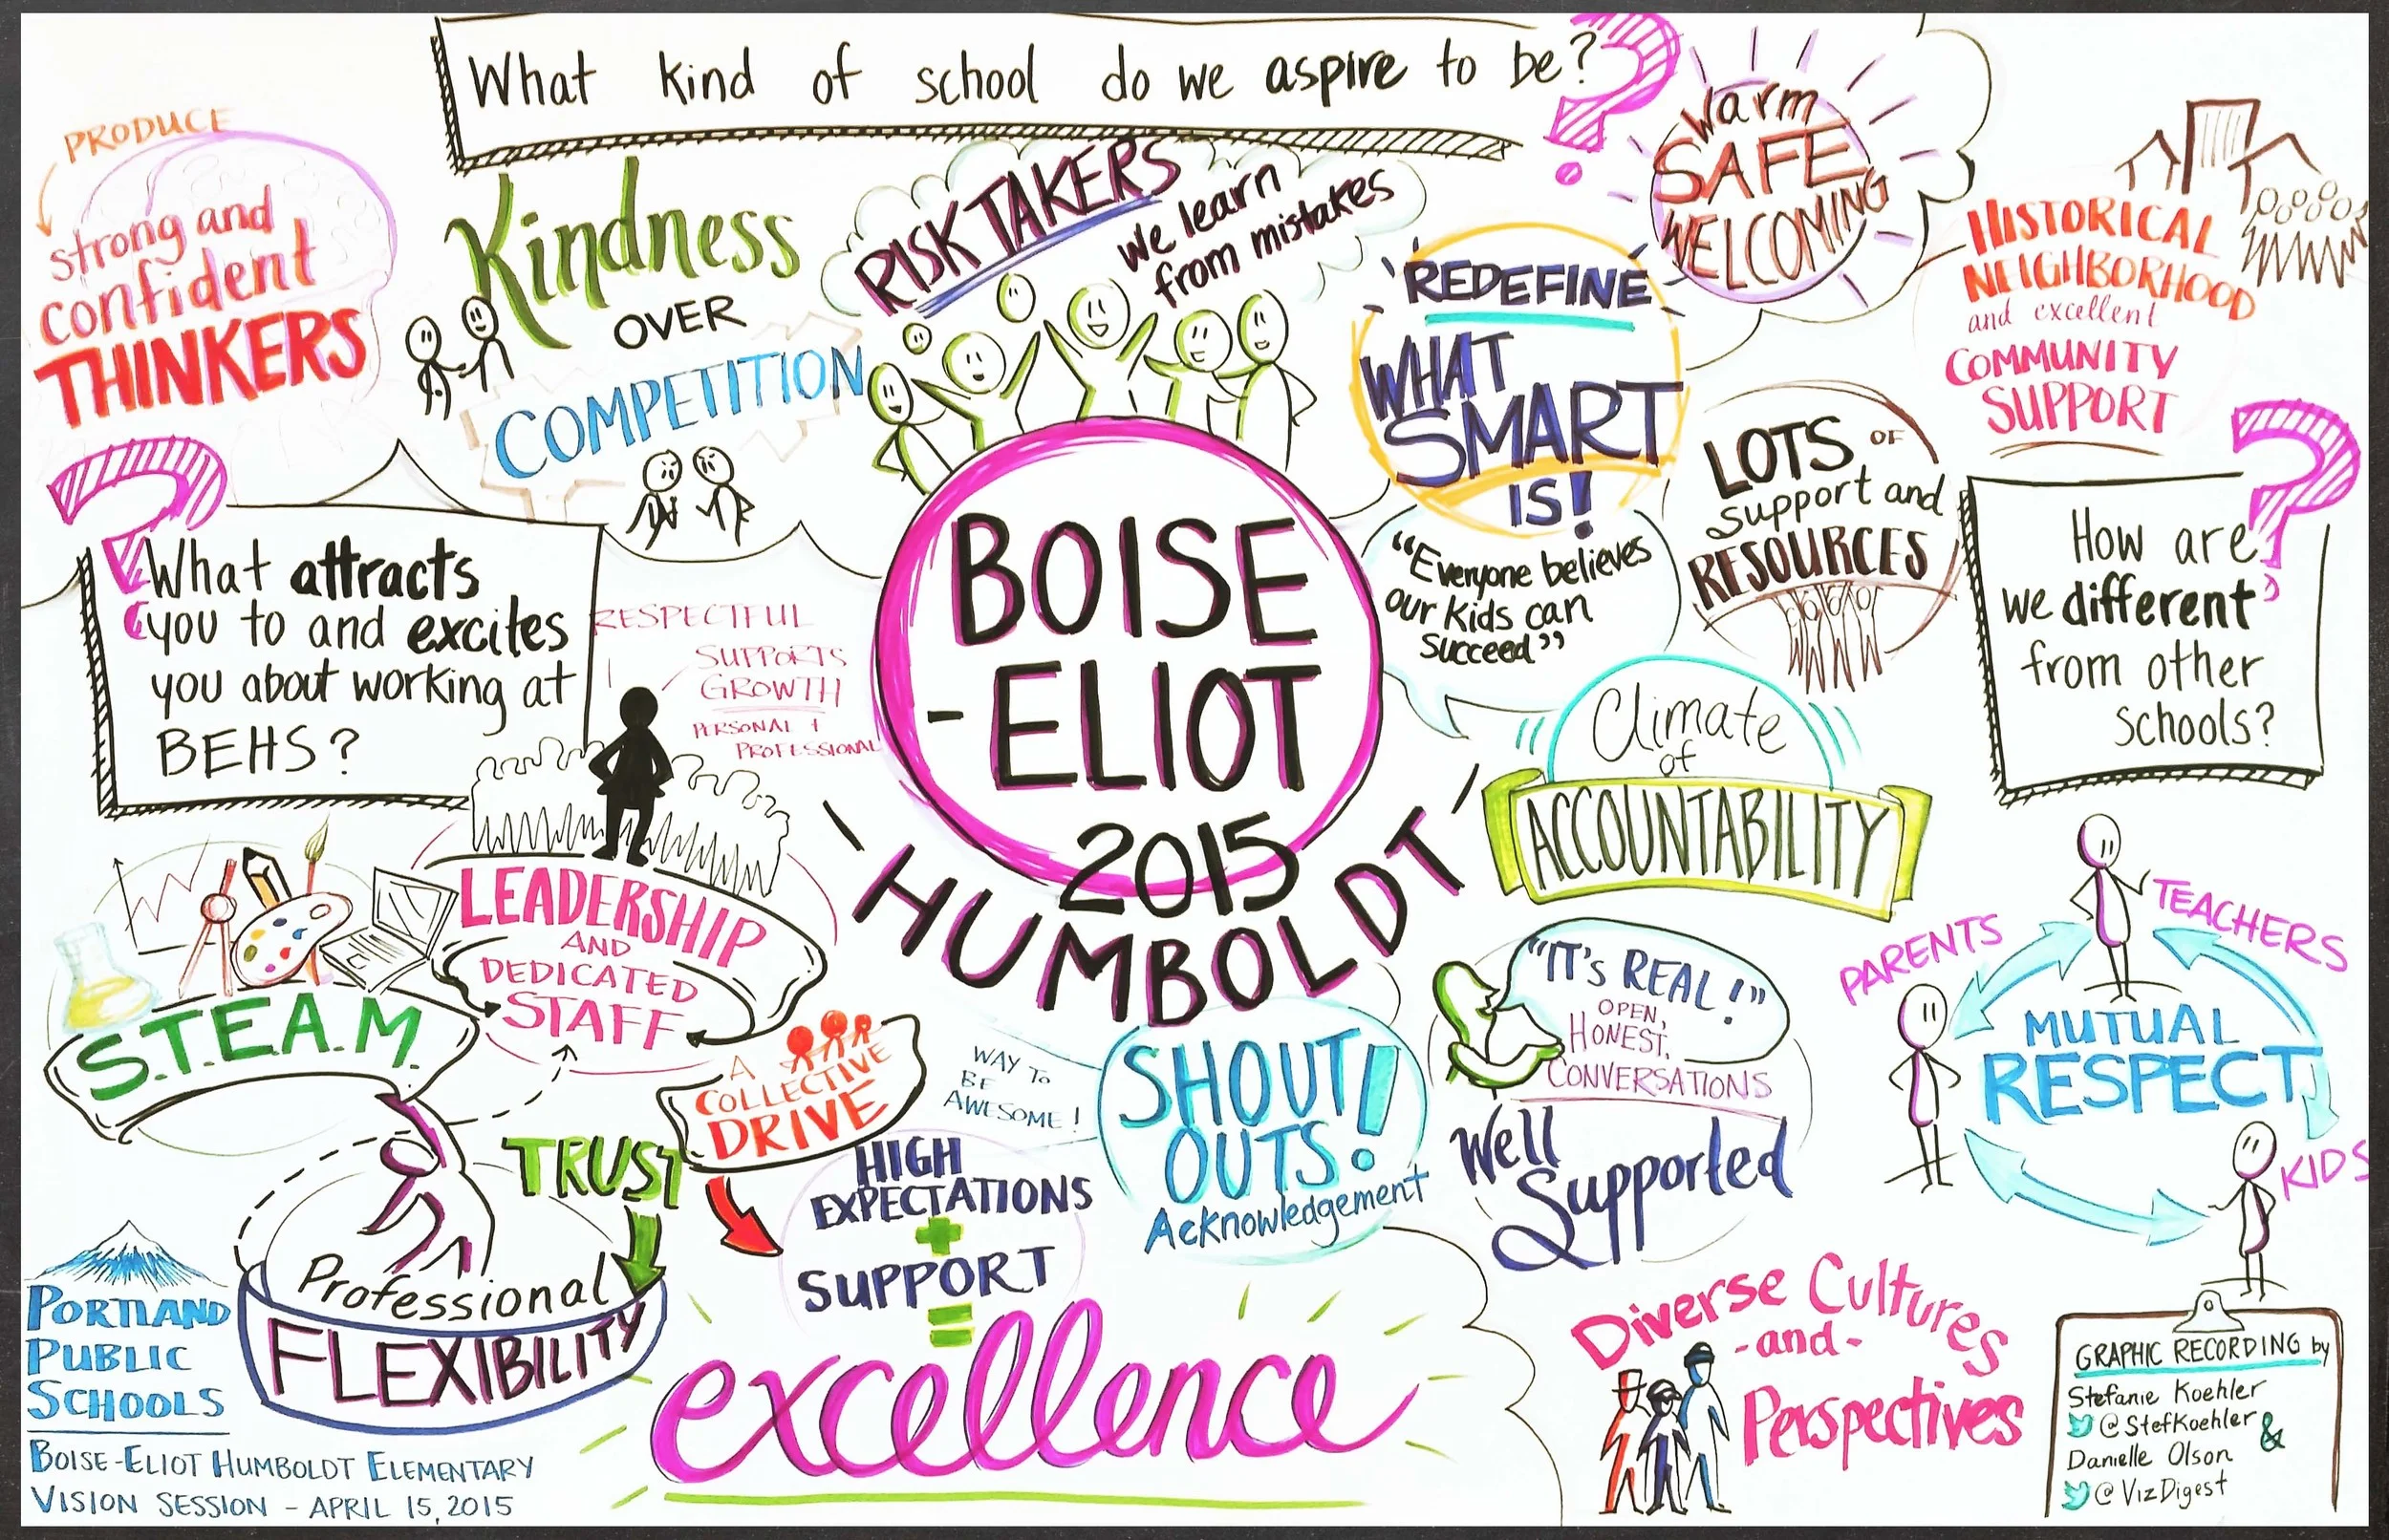 What kind of school do we aspire to be?
PRODUCE
strong and
confident
THINKERS
Kindness
OVER
COMPETITION
RISK TAKERS
we learn
from mistakes
REDEFINE
WHAT
SMART
IS!
"Everyone believes
our kids can
succeed"
Warm
SAFE
WELCOMING
HISTORICAL
NEIGHBORHOOD
and excellent
COMMUNITY
SUPPORT
LOTS OF
support and
RESOURCES
How are
we different
from other
schools?
What attracts
you to and excites
you about working at
BEHS?
RESPECTFUL
SUPPORTS
GROWTH
PERSONAL +
PROFESSIONAL
BOISE
-ELIOT
2015
HUMBOLDT
Climate
of
ACCOUNTABILITY
LEADERSHIP
AND
DEDICATED
STAFF
S.T.E.A.M.
A
COLLECTIVE
DRIVE
TRUST
Professional
FLEXIBILITY
WAY TO
BE
AWESOME!
SHOUT
OUTS!
Acknowledgement
"IT'S REAL!"
OPEN,
HONEST,
CONVERSATIONS
Well
Supported
PARENTS
TEACHERS
MUTUAL
RESPECT
KIDS
HIGH
EXPECTATIONS
+
SUPPORT
=
excellence
Diverse Cultures
-and-
Perspectives
PORTLAND
PUBLIC
SCHOOLS
BOISE-ELIOT HUMBOLDT ELEMENTARY
VISION SESSION - APRIL 15, 2015
GRAPHIC RECORDING by
Stefanie Koehler
@StefKoehler
&
Danielle Olson
@VizDigest